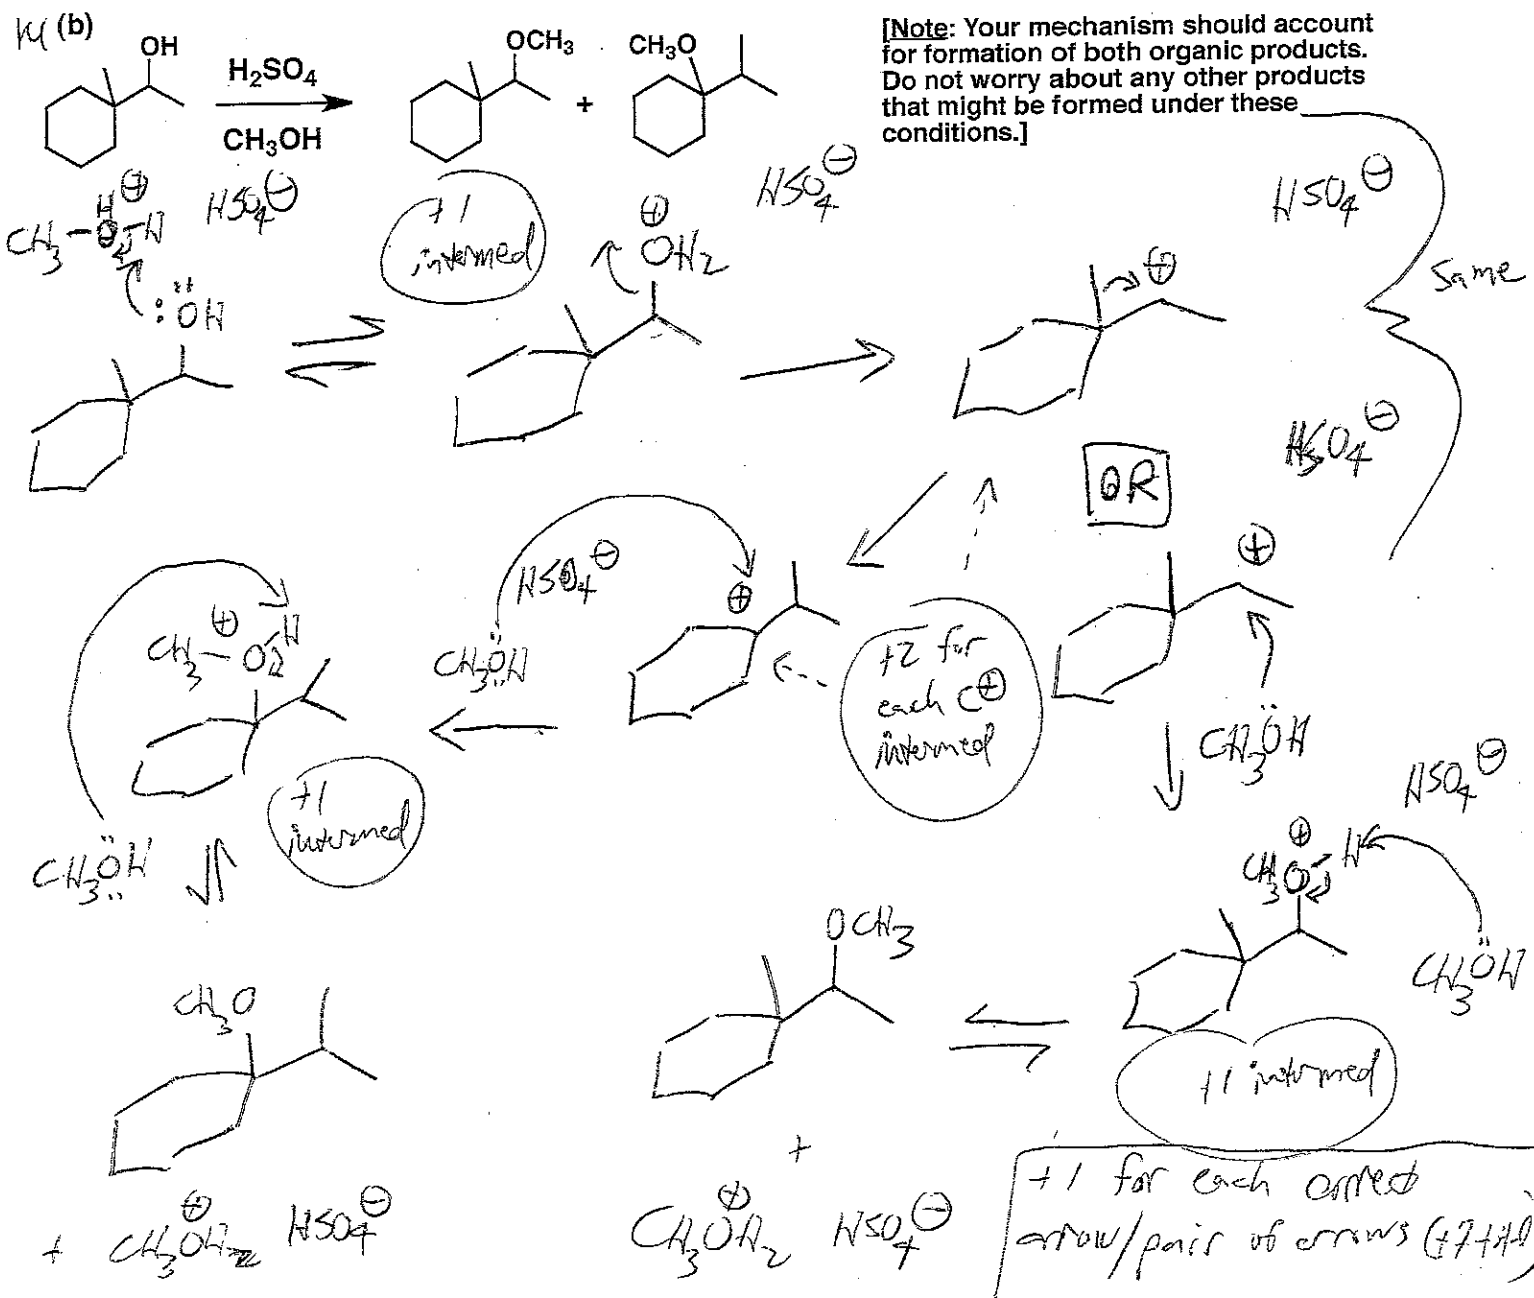 14 (b)
OH
H2SO4
CH3OH
OCH3
+
CH3O
[Note: Your mechanism should account
for formation of both organic products.
Do not worry about any other products
that might be formed under these
conditions.]
H ⊕
CH3-O-H
HSO4⊖
:ÖH
+1
intermed
⊕
OH2
HSO4⊖
⊕
HSO4⊖
Same
HSO4⊖
OR
⊕
CH3ÖH
HSO4⊖
⊕
CH3ÖH
+2 for
each C⊕
intermed
HSO4⊖
⊕
CH3-O-H
CH3ÖH
+1
intermed
⊕
CH3O-H
CH3ÖH
+1 intermed
OCH3
+
CH3OH2⊕ HSO4⊖
CH3O
+ CH3OH2⊕ HSO4⊖
+1 for each correct
arrow/pair of arrows